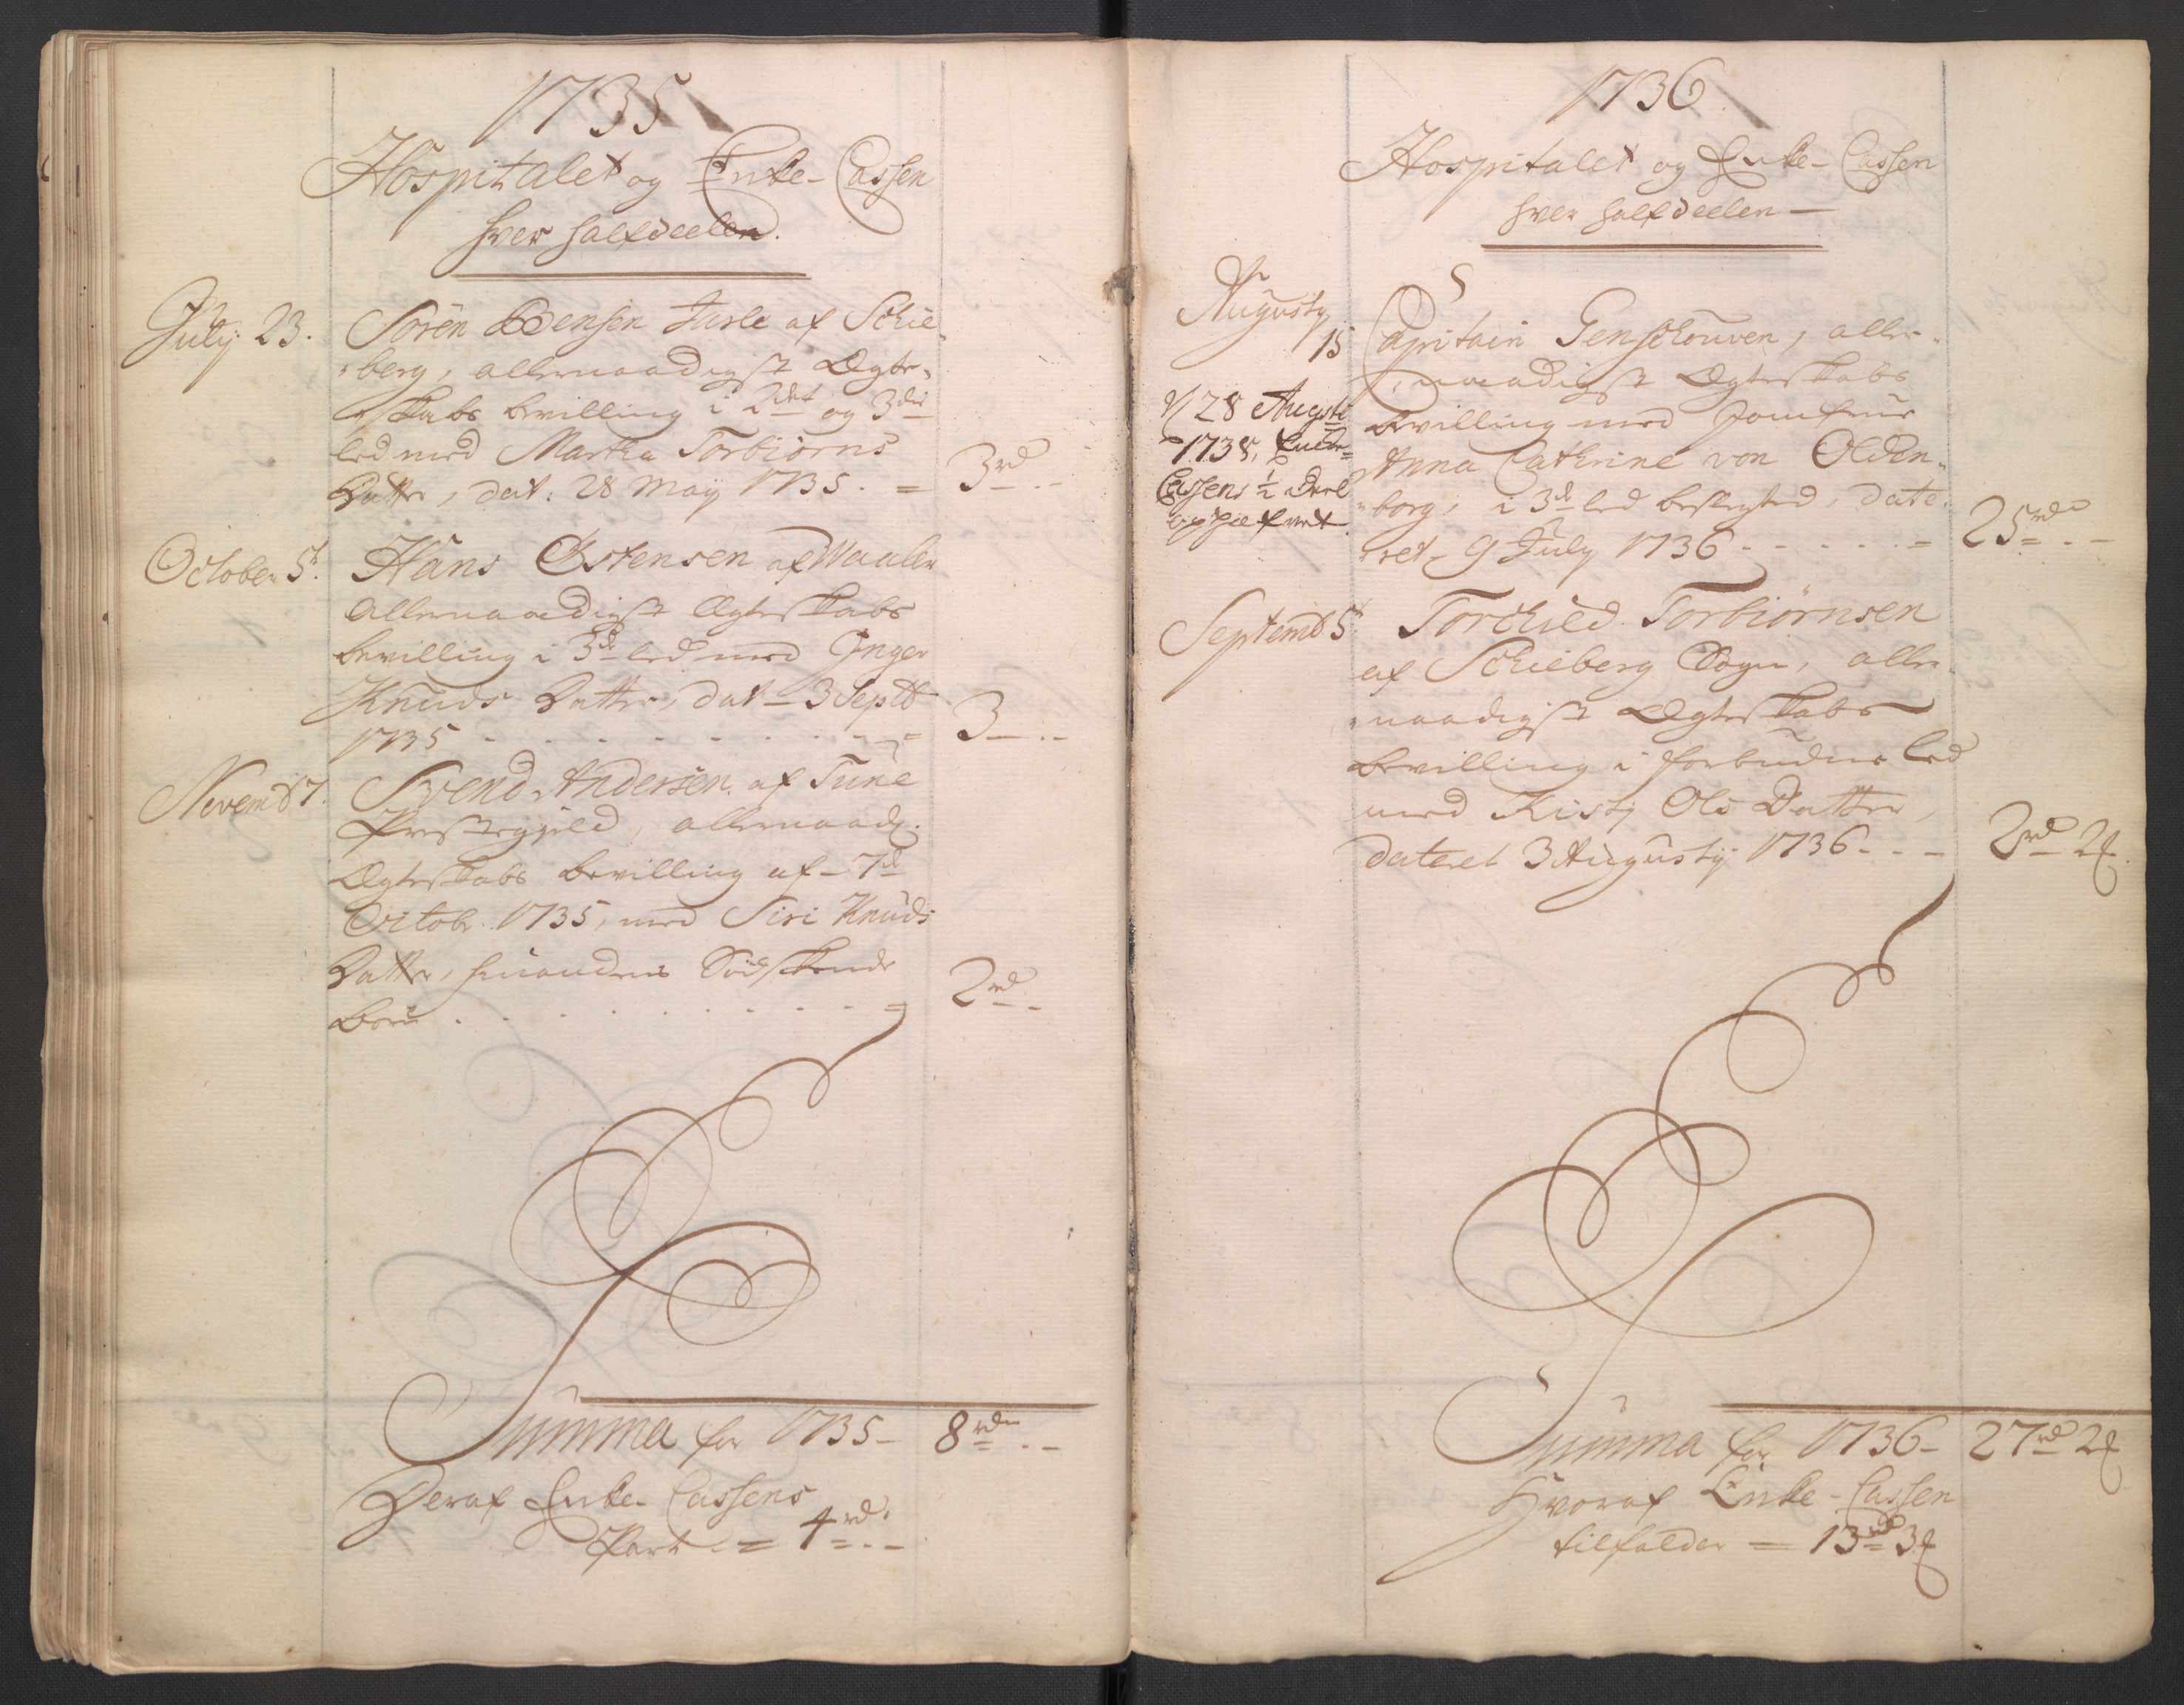 1735
Hospitalet og Enke-Cassen
hver halfdeelen.
July 23.
Sören Bensen af Schie-
berg, allernaadigst Ægte-
skabs bevilling i 2det og 3die
led med Martha Torbiörns
Datter, dat: 28 May 1735. =
3 rd - -
October 5t.
Hans Ostensen af Waaler
Allernaadigst Ægteskabs
bevilling i 3de led med Inger
Knuds Datter, dat - 3 Septb
1735 - - - - - - - =
3 - - -
Novemb 7.
Svend Andersen af Tune
Præstegield, allernaadg.
Ægteskabs bevilling af - 7de
Octobr. 1735, med Siri Knuds
Datter, hinandens Södskende
börn . . . . . . . . =
2 rd - -
Summa for 1735 -
8 rd - -
Deraf Enke-Cassens
Part = 4 rd. - -
1736
Hospitalet og Enke-Cassen
hver halfdeelen -
Augusty
15
Capitain Genschouven, aller-
naadigst Ægteskabs
bevilling med Jomfrue
Anna Cathrine von Olden-
borg, i 3de led beslegted, date-
ret - 9 July 1736 - - - - - =
25 rd - -
28 Augsti
1738, Enke-
Cassens 1/2 Deel
Septemb 5t
Torchild Torbiörnsen
af Schieberg Sogn, aller-
naadigst Ægteskabs
bevilling i forbudne led
med Kisty Ols Datter,
dateret 3 Augusty 1736 - - -
2 rd 2
Summa for 1736 -
27 rd 2
Hvoraf Enke-Cassen
tilfalder = 13 rd 3